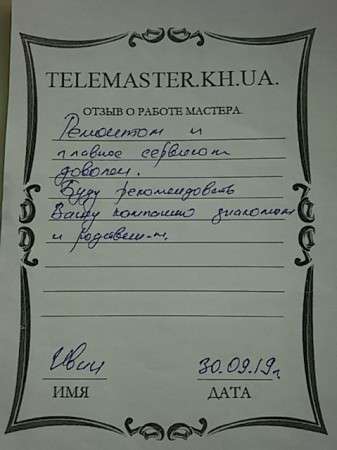 TELEMASTER.KH.UA.
ОТЗЫВ О РАБОТЕ МАСТЕРА.
Ремонтом и
главное сервисом
доволен.
Буду рекомендовать
Вашу компанию знакомым
и родствен-м.
Иван 30.09.19г
ИМЯ ДАТА